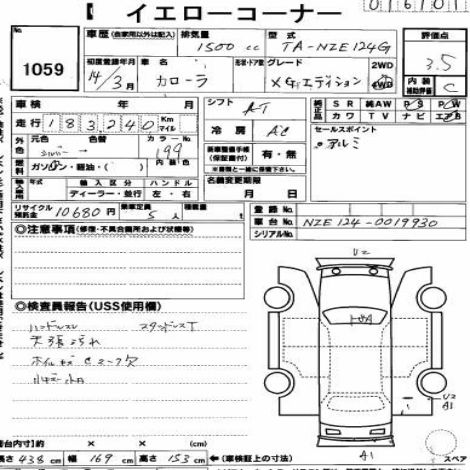 イエローコーナー
1059
車歴 (自家用以外は記入) 排気量 1500 cc 型式 TA-NZE124G 評価点 3.5
初度登録年月 14/3月 車名 カローラ 形状・ドア数 グレード XGエディション 2WD 4WD 内装 補助評価 C
車検 年 月 シフト AT 純正品 SR 純AW PS PW
走行 183,240 Km マイル カワ TV ナビ エアB
外色 元色 シルバー 色替 カラーNo. 199 冷房 AC セールスポイント
アルミ
燃料 ガソリン・軽油・( ) 内装色 新車整備手帳 (保証書付) 有・無
※書類と一緒に保管下さい。
輸入車 年式 輸入区分 ハンドル 名義変更期限
ディーラー・並行 左・右 月 日
リサイクル預託金 10680円 乗車定員 5人 積載量 t 登録No.
車台No. NZE124-0019930
シリアルNo.
◎注意事項 (修復・不具合箇所および状態等)
◎検査員報告 (USS使用欄)
ハンドルスレ スタッドレスT
天張ヨゴレ
小キズ小凹
U2
U2
A1
A1
(荷台内寸) × × (cm)
長さ 438 cm 幅 169 cm 高さ 153 cm ←(車検証上の寸法) スペア